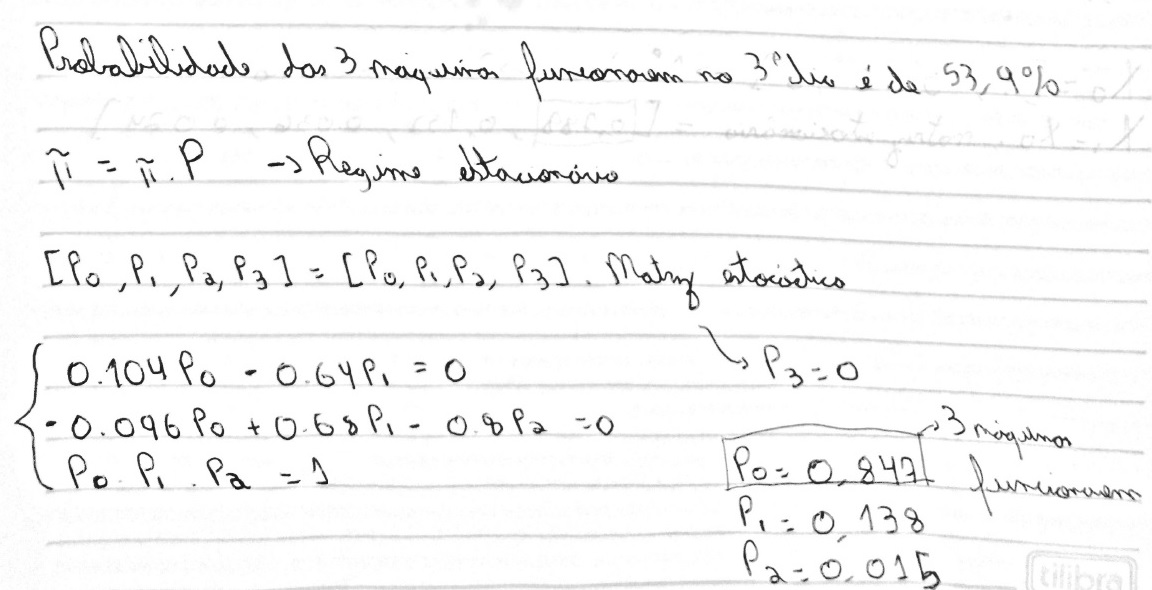 Probabilidade das 3 maquinas funcionarem no 3º dia é de 53,9%
π = π . P -> Regime estacionário
[P0, P1, P2, P3] = [P0, P1, P2, P3] . Matriz estocástica
P3 = 0
0.104 P0 - 0.64 P1 = 0
- 0.096 P0 + 0.68 P1 - 0.8 P2 = 0
P0 . P1 . P2 = 1
P0 = 0,847 -> 3 máquinas funcionarem
P1 = 0,138
P2 = 0,015
tilibra